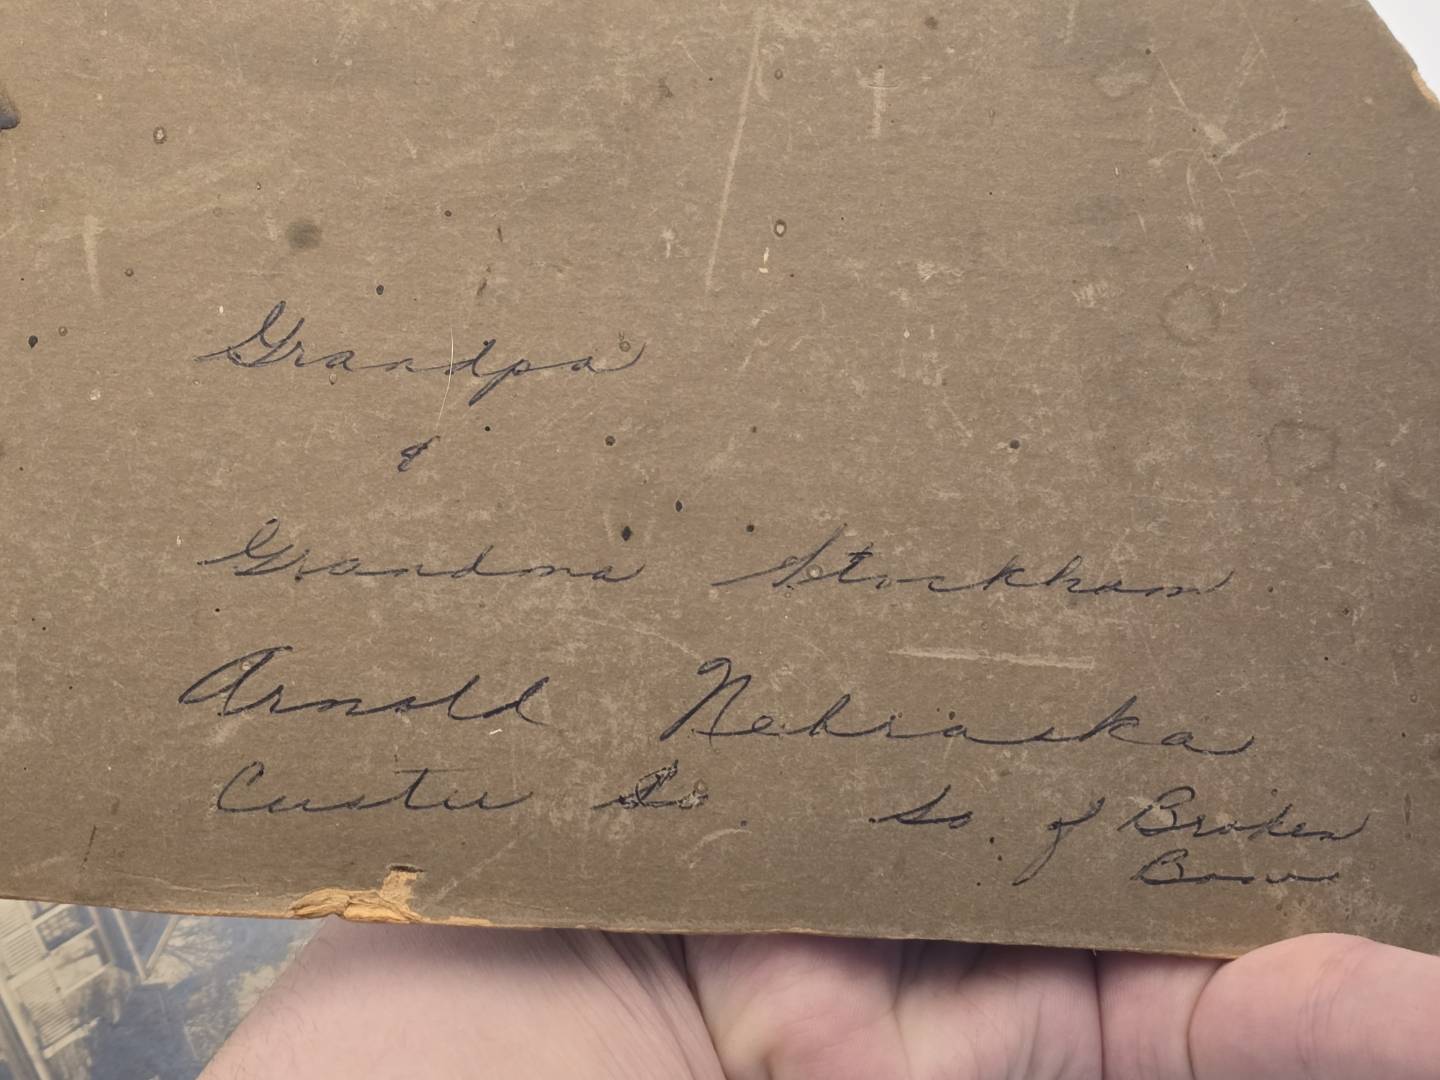 Grandpa
&
Grandma Stockham
Arnold Nebraska
Custer Co. So. of Broken
Bow